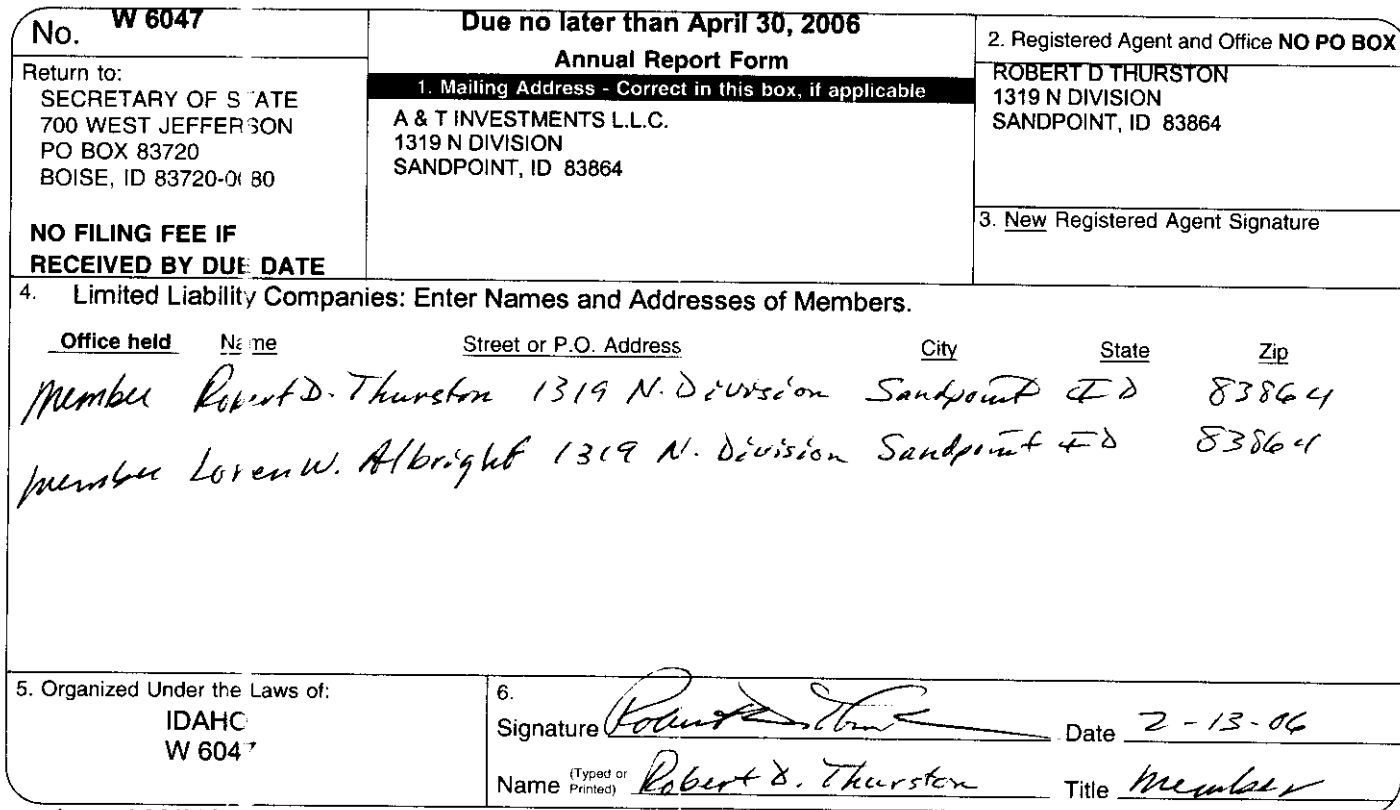 No. W 6047
Return to:
SECRETARY OF S ATE
700 WEST JEFFERSON
PO BOX 83720
BOISE, ID 83720-0 80
NO FILING FEE IF
RECEIVED BY DUE DATE
Due no later than April 30, 2006
Annual Report Form
1. Mailing Address - Correct in this box, if applicable
A & T INVESTMENTS L.L.C.
1319 N DIVISION
SANDPOINT, ID 83864
2. Registered Agent and Office NO PO BOX
ROBERT D THURSTON
1319 N DIVISION
SANDPOINT, ID 83864
3. New Registered Agent Signature
4. Limited Liability Companies: Enter Names and Addresses of Members.
Office held Name Street or P.O. Address City State Zip
Member Robert D. Thurston 1319 N. Division Sandpoint ID 83864
member Loren W. Albright 1319 N. Division Sandpoint ID 83864
5. Organized Under the Laws of:
IDAHO
W 6047
6.
Signature Date 2-13-06
Name (Typed or Printed) Robert D. Thurston Title Member